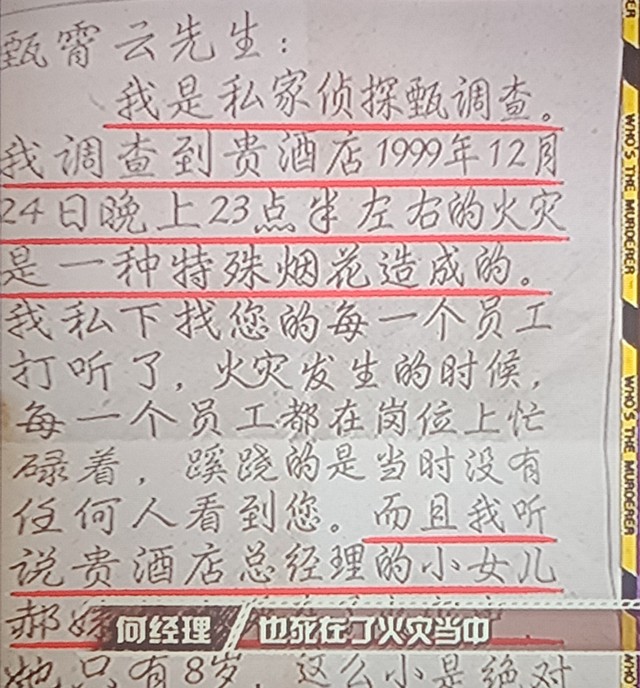 甄霄云先生：
我是私家侦探甄调查。
我调查到贵酒店1999年12月
24日晚上23点半左右的火灾
是一种特殊烟花造成的。
我私下找您的每一个员工
打听了，火灾发生的时候，
每一个员工都在岗位上忙
碌着，蹊跷的是当时没有
任何人看到您。而且我听
说贵酒店总经理的小女儿
郝
何经理 也死在了火灾当中
她只有8岁，这么小是绝对
ER
WHO'S THE MURDERER
WHO'S THE MURDERER
WHO